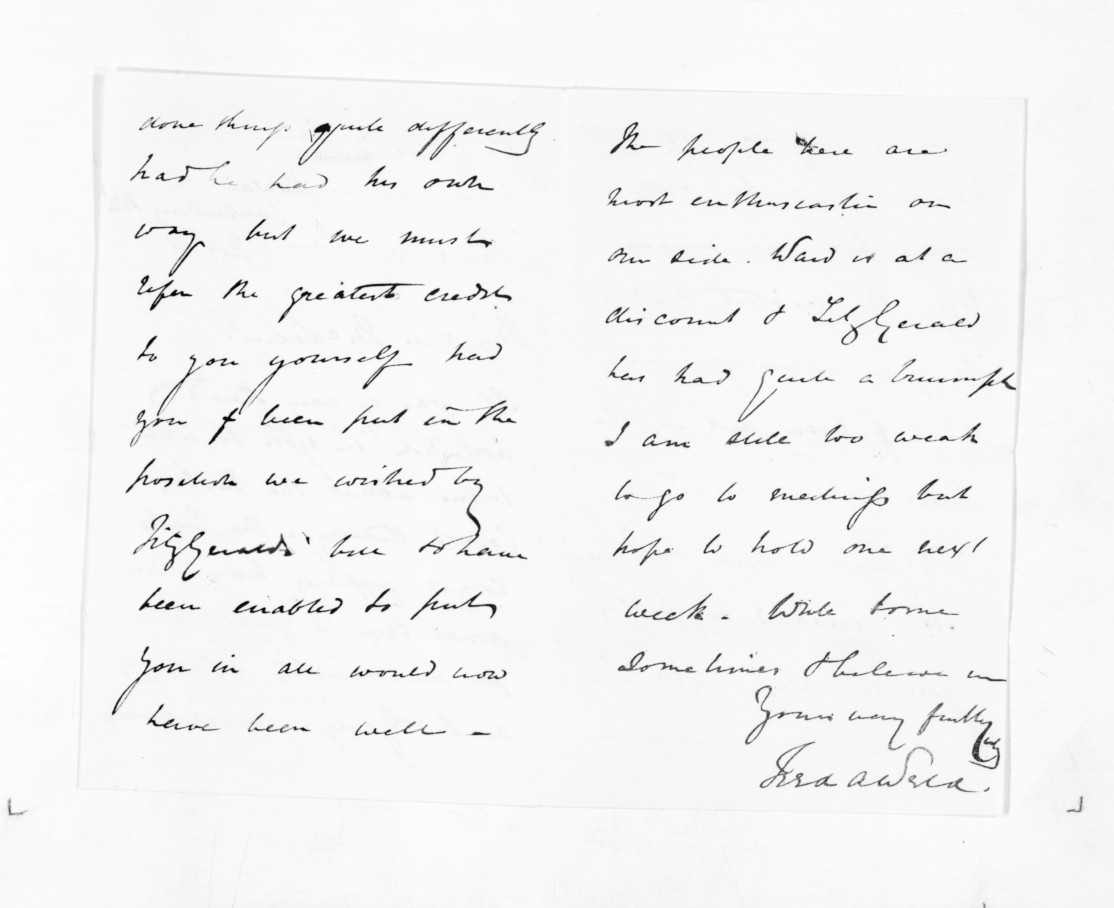 done things quite differently
had he had his own
way but we must
refer the greatest credit
to you yourself had
you been put in the
position we wished by
FitzGeralds' bill & have
been enabled to put
you in all would now
have been well -
The people here are
most enthusiastic on
our side. Ward is at a
discount & FitzGerald
has had quite a triumph
I am still too weak
to go to meetings but
hope to hold one next
week. Write to me
sometimes & believe me
Yours very faithfully
Fred A Weld.